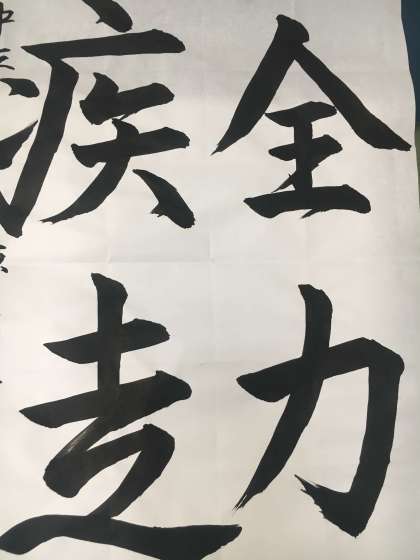 全力
疾走